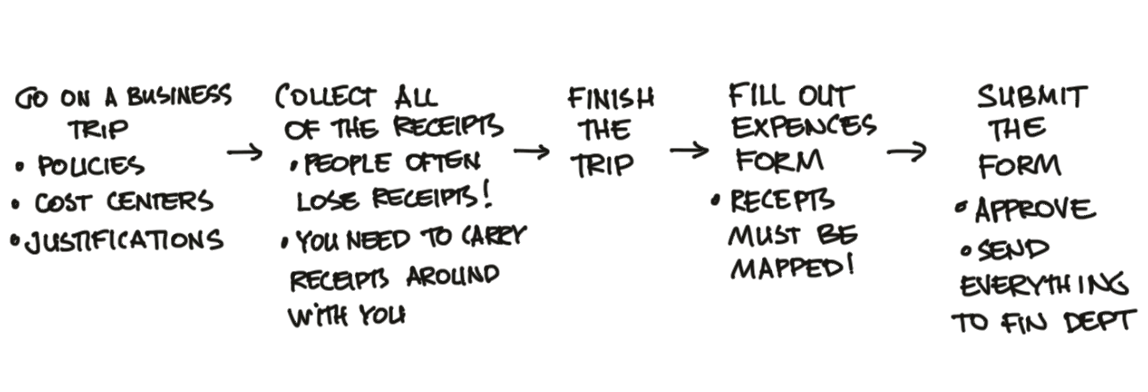 GO ON A BUSINESS
TRIP
• POLICIES
• COST CENTERS
• JUSTIFICATIONS
→
COLLECT ALL
OF THE RECEIPTS
• PEOPLE OFTEN
LOSE RECEIPTS!
• YOU NEED TO CARRY
RECEIPTS AROUND
WITH YOU
→
FINISH
THE
TRIP
→
FILL OUT
EXPENCES
FORM
• RECEPTS
MUST BE
MAPPED!
→
SUBMIT
THE
FORM
• APPROVE
• SEND
EVERYTHING
TO FIN DEPT